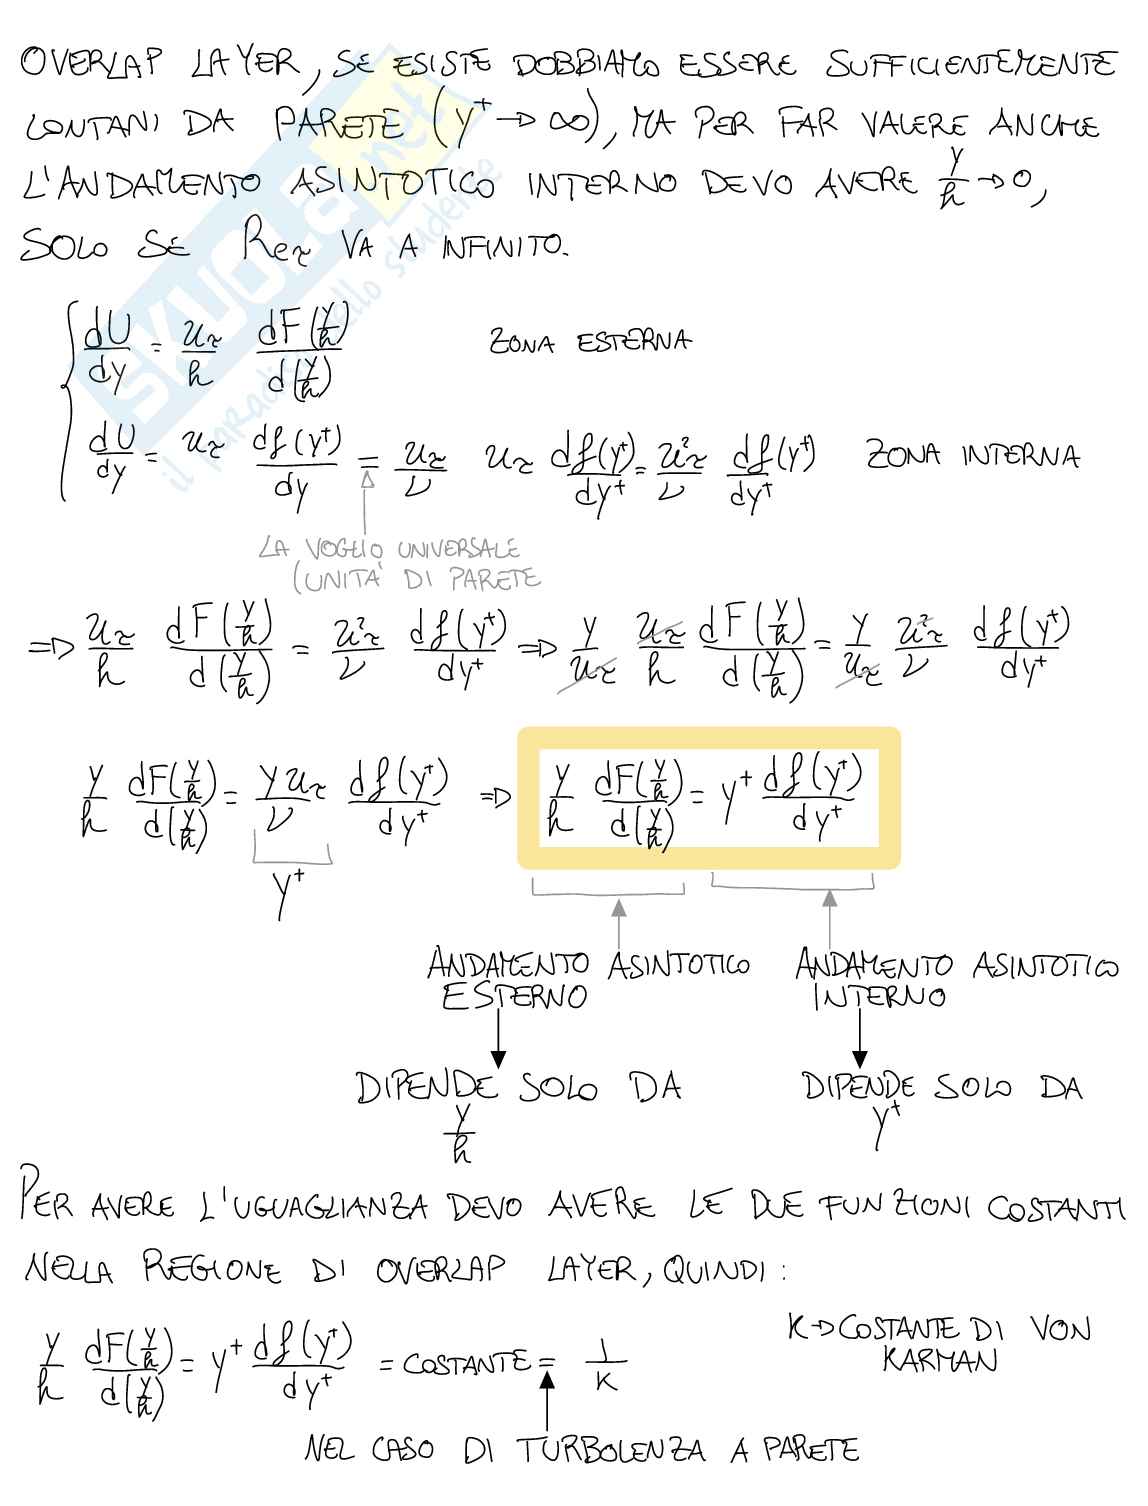 OVERLAP LAYER, SE ESISTE DOBBIAMO ESSERE SUFFICIENTEMENTE
LONTANI DA PARETE (y⁺ → ∞), MA PER FAR VALERE ANCHE
L'ANDAMENTO ASINTOTICO INTERNO DEVO AVERE y/h → 0,
SOLO SE Reτ VA A INFINITO.
SKUOLA.net
il paradiso dello studente
{ dU/dy = uτ/h dF(y/h)/d(y/h) ZONA ESTERNA
dU/dy = uτ df(y⁺)/dy = uτ/ν uτ df(y⁺)/dy⁺ = uτ²/ν df(y⁺)/dy⁺ ZONA INTERNA
LA VOGLIO UNIVERSALE
(UNITA' DI PARETE
⇒ uτ/h dF(y/h)/d(y/h) = uτ²/ν df(y⁺)/dy⁺ ⇒ y/uτ uτ/h dF(y/h)/d(y/h) = y/uτ uτ²/ν df(y⁺)/dy⁺
y/h dF(y/h)/d(y/h) = y uτ/ν df(y⁺)/dy⁺ ⇒ y/h dF(y/h)/d(y/h) = y⁺ df(y⁺)/dy⁺
y⁺
ANDAMENTO ASINTOTICO
ESTERNO
ANDAMENTO ASINTOTICO
INTERNO
DIPENDE SOLO DA
y/h
DIPENDE SOLO DA
y⁺
PER AVERE L'UGUAGLIANZA DEVO AVERE LE DUE FUNZIONI COSTANTI
NELLA REGIONE DI OVERLAP LAYER, QUINDI:
y/h dF(y/h)/d(y/h) = y⁺ df(y⁺)/dy⁺ = COSTANTE = 1/K
K → COSTANTE DI VON
KARMAN
NEL CASO DI TURBOLENZA A PARETE